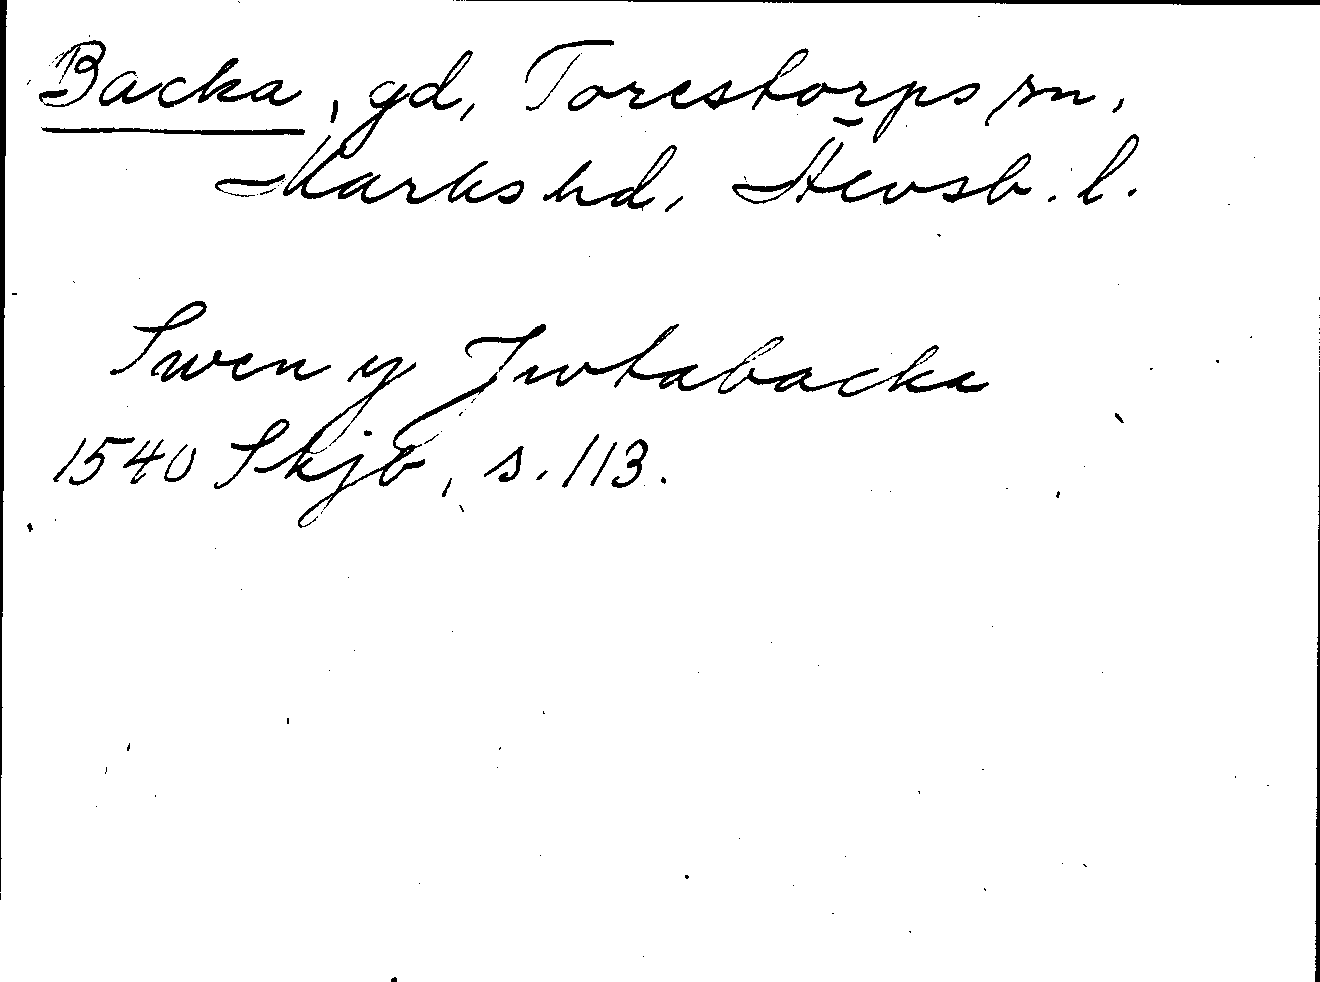 Backa, gd, Torestorps sn,
Marks hd, Älvsb. l.
Swen y Jwtabacka
1540 Skjb, s. 113.